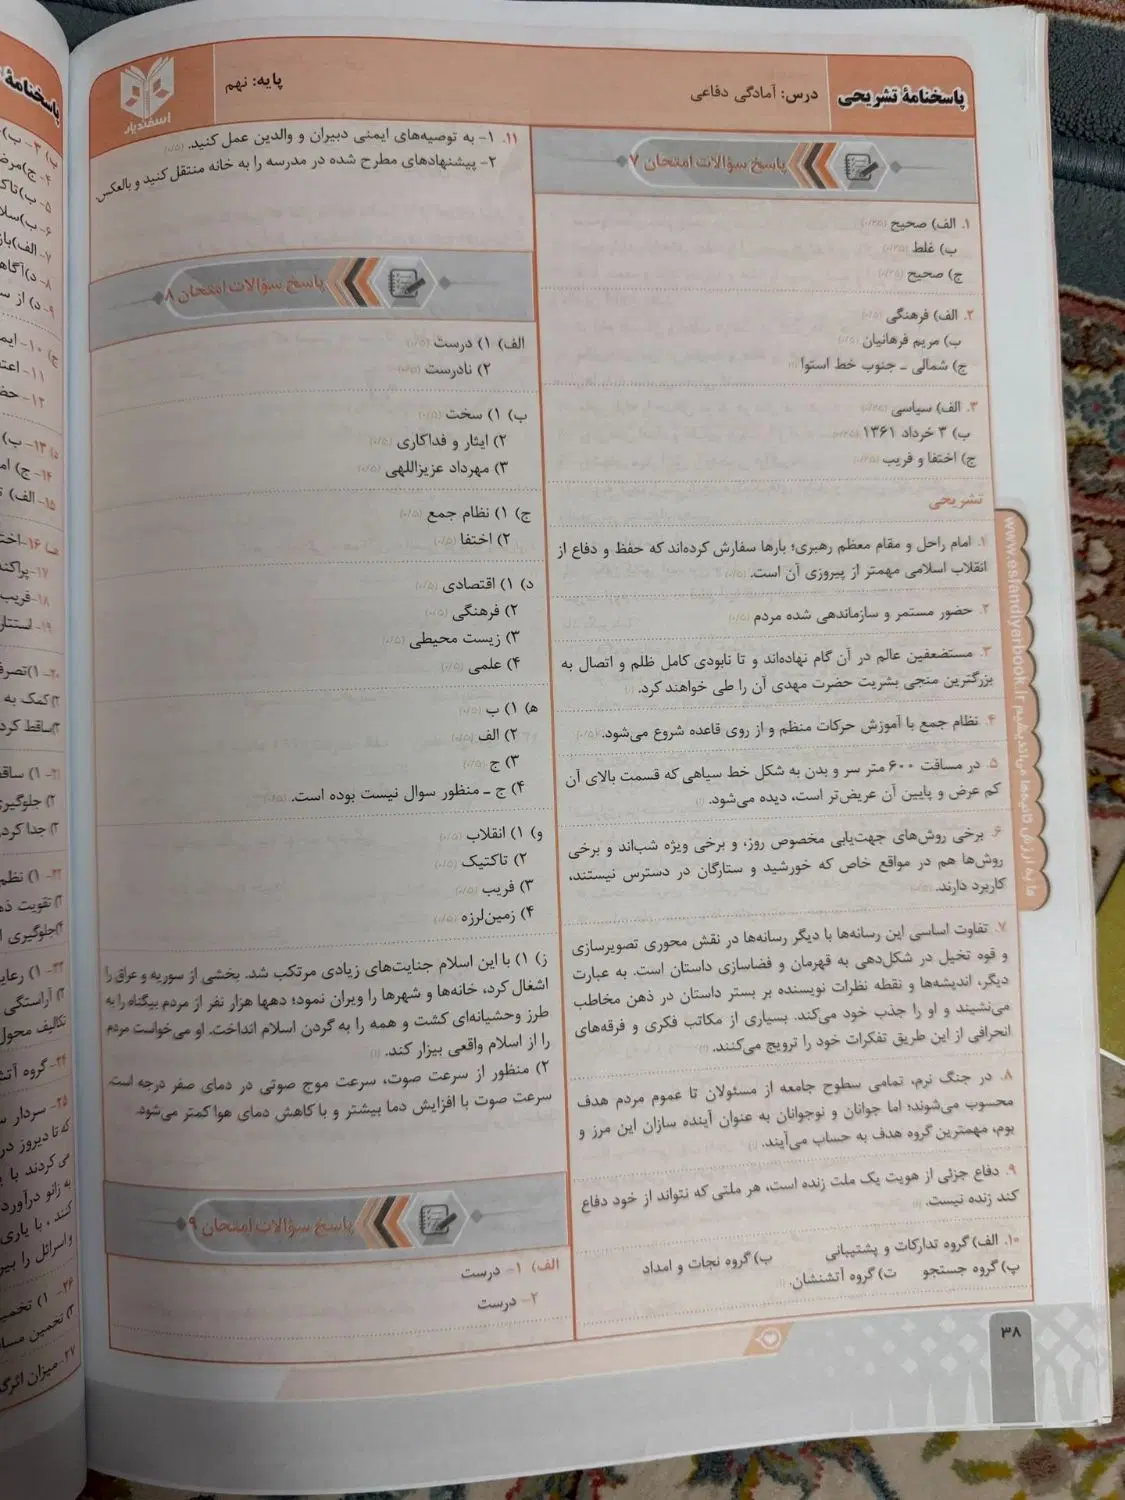 پاسخنامهٔ تشریحی
درس: آمادگی دفاعی
پایه: نهم
اسفندیار
پاسخ سؤالات امتحان ۷
۱. الف) صحیح (۰/۲۵)
ب) غلط (۰/۲۵)
ج) صحیح (۰/۲۵)
۲. الف) فرهنگی (۰/۵)
ب) مریم فرهانیان (۰/۵)
ج) شمالی ـ جنوب خط استوا (۱)
۳. الف) سیاسی (۰/۲۵)
ب) ۳ خرداد ۱۳۶۱ (۰/۲۵)
ج) اختفا و فریب (۰/۲۵)
تشریحی
۱. امام راحل و مقام معظم رهبری؛ بارها سفارش کرده‌اند که حفظ و دفاع از
انقلاب اسلامی مهمتر از پیروزی آن است. (۰/۵)
۲. حضور مستمر و سازماندهی شده مردم (۰/۵)
۳. مستضعفین عالم در آن گام نهاده‌اند و تا نابودی کامل ظلم و اتصال به
بزرگترین منجی بشریت حضرت مهدی آن را طی خواهند کرد. (۱)
۴. نظام جمع با آموزش حرکات منظم و از روی قاعده شروع می‌شود. (۰/۵)
۵. در مسافت ۶۰۰ متر سر و بدن به شکل خط سیاهی که قسمت بالای آن
کم عرض و پایین آن عریض‌تر است، دیده می‌شود. (۱)
۶. برخی روش‌های جهت‌یابی مخصوص روز، و برخی ویژه شب‌اند و برخی
روش‌ها هم در مواقع خاص که خورشید و ستارگان در دسترس نیستند،
کاربرد دارند.
۷. تفاوت اساسی این رسانه‌ها با دیگر رسانه‌ها در نقش محوری تصویرسازی
و قوه تخیل در شکل‌دهی به قهرمان و فضاسازی داستان است. به عبارت
دیگر، اندیشه‌ها و نقطه نظرات نویسنده بر بستر داستان در ذهن مخاطب
می‌نشیند و او را جذب خود می‌کند. بسیاری از مکاتب فکری و فرقه‌های
انحرافی از این طریق تفکرات خود را ترویج می‌کنند. (۱)
۸. در جنگ نرم، تمامی سطوح جامعه از مسئولان تا عموم مردم هدف
محسوب می‌شوند؛ اما جوانان و نوجوانان به عنوان آینده سازان این مرز و
بوم، مهمترین گروه هدف به حساب می‌آیند. (۱)
۹. دفاع جزئی از هویت یک ملت زنده است، هر ملتی که نتواند از خود دفاع
کند زنده نیست. (۱)
۱۰. الف) گروه تدارکات و پشتیبانی ب) گروه نجات و امداد
پ) گروه جستجو ت) گروه آتشنشان. (۱)
۱۱. ۱- به توصیه‌های ایمنی دبیران و والدین عمل کنید. (۰/۵)
۲- پیشنهادهای مطرح شده در مدرسه را به خانه منتقل کنید و بالعکس.
پاسخ سؤالات امتحان ۸
الف) ۱) درست (۰/۵)
۲) نادرست (۰/۵)
ب) ۱) سخت (۰/۵)
۲) ایثار و فداکاری (۰/۵)
۳) مهرداد عزیزاللهی (۰/۵)
ج) ۱) نظام جمع (۰/۵)
۲) اختفا (۰/۵)
د) ۱) اقتصادی (۰/۵)
۲) فرهنگی (۰/۵)
۳) زیست محیطی (۰/۵)
۴) علمی (۰/۵)
ه) ۱) ب (۰/۵)
۲) الف (۰/۵)
۳) ج (۰/۵)
۴) ج ـ منظور سوال نیست بوده است. (۰/۵)
و) ۱) انقلاب (۰/۵)
۲) تاکتیک (۰/۵)
۳) فریب (۰/۵)
۴) زمین‌لرزه (۰/۵)
ز) ۱) با این اسلام جنایت‌های زیادی مرتکب شد. بخشی از سوریه و عراق را
اشغال کرد، خانه‌ها و شهرها را ویران نمود؛ دهها هزار نفر از مردم بیگناه را به
طرز وحشیانه‌ای کشت و همه را به گردن اسلام انداخت. او می‌خواست مردم
را از اسلام واقعی بیزار کند. (۱)
۲) منظور از سرعت صوت، سرعت موج صوتی در دمای صفر درجه است.
سرعت صوت با افزایش دما بیشتر و با کاهش دمای هوا کمتر می‌شود.
پاسخ سؤالات امتحان ۹
الف) ۱- درست
۲- درست
www.esfandiyarbook.ir ما به ارزش ثانیه‌ها می‌اندیشیم
۳۸